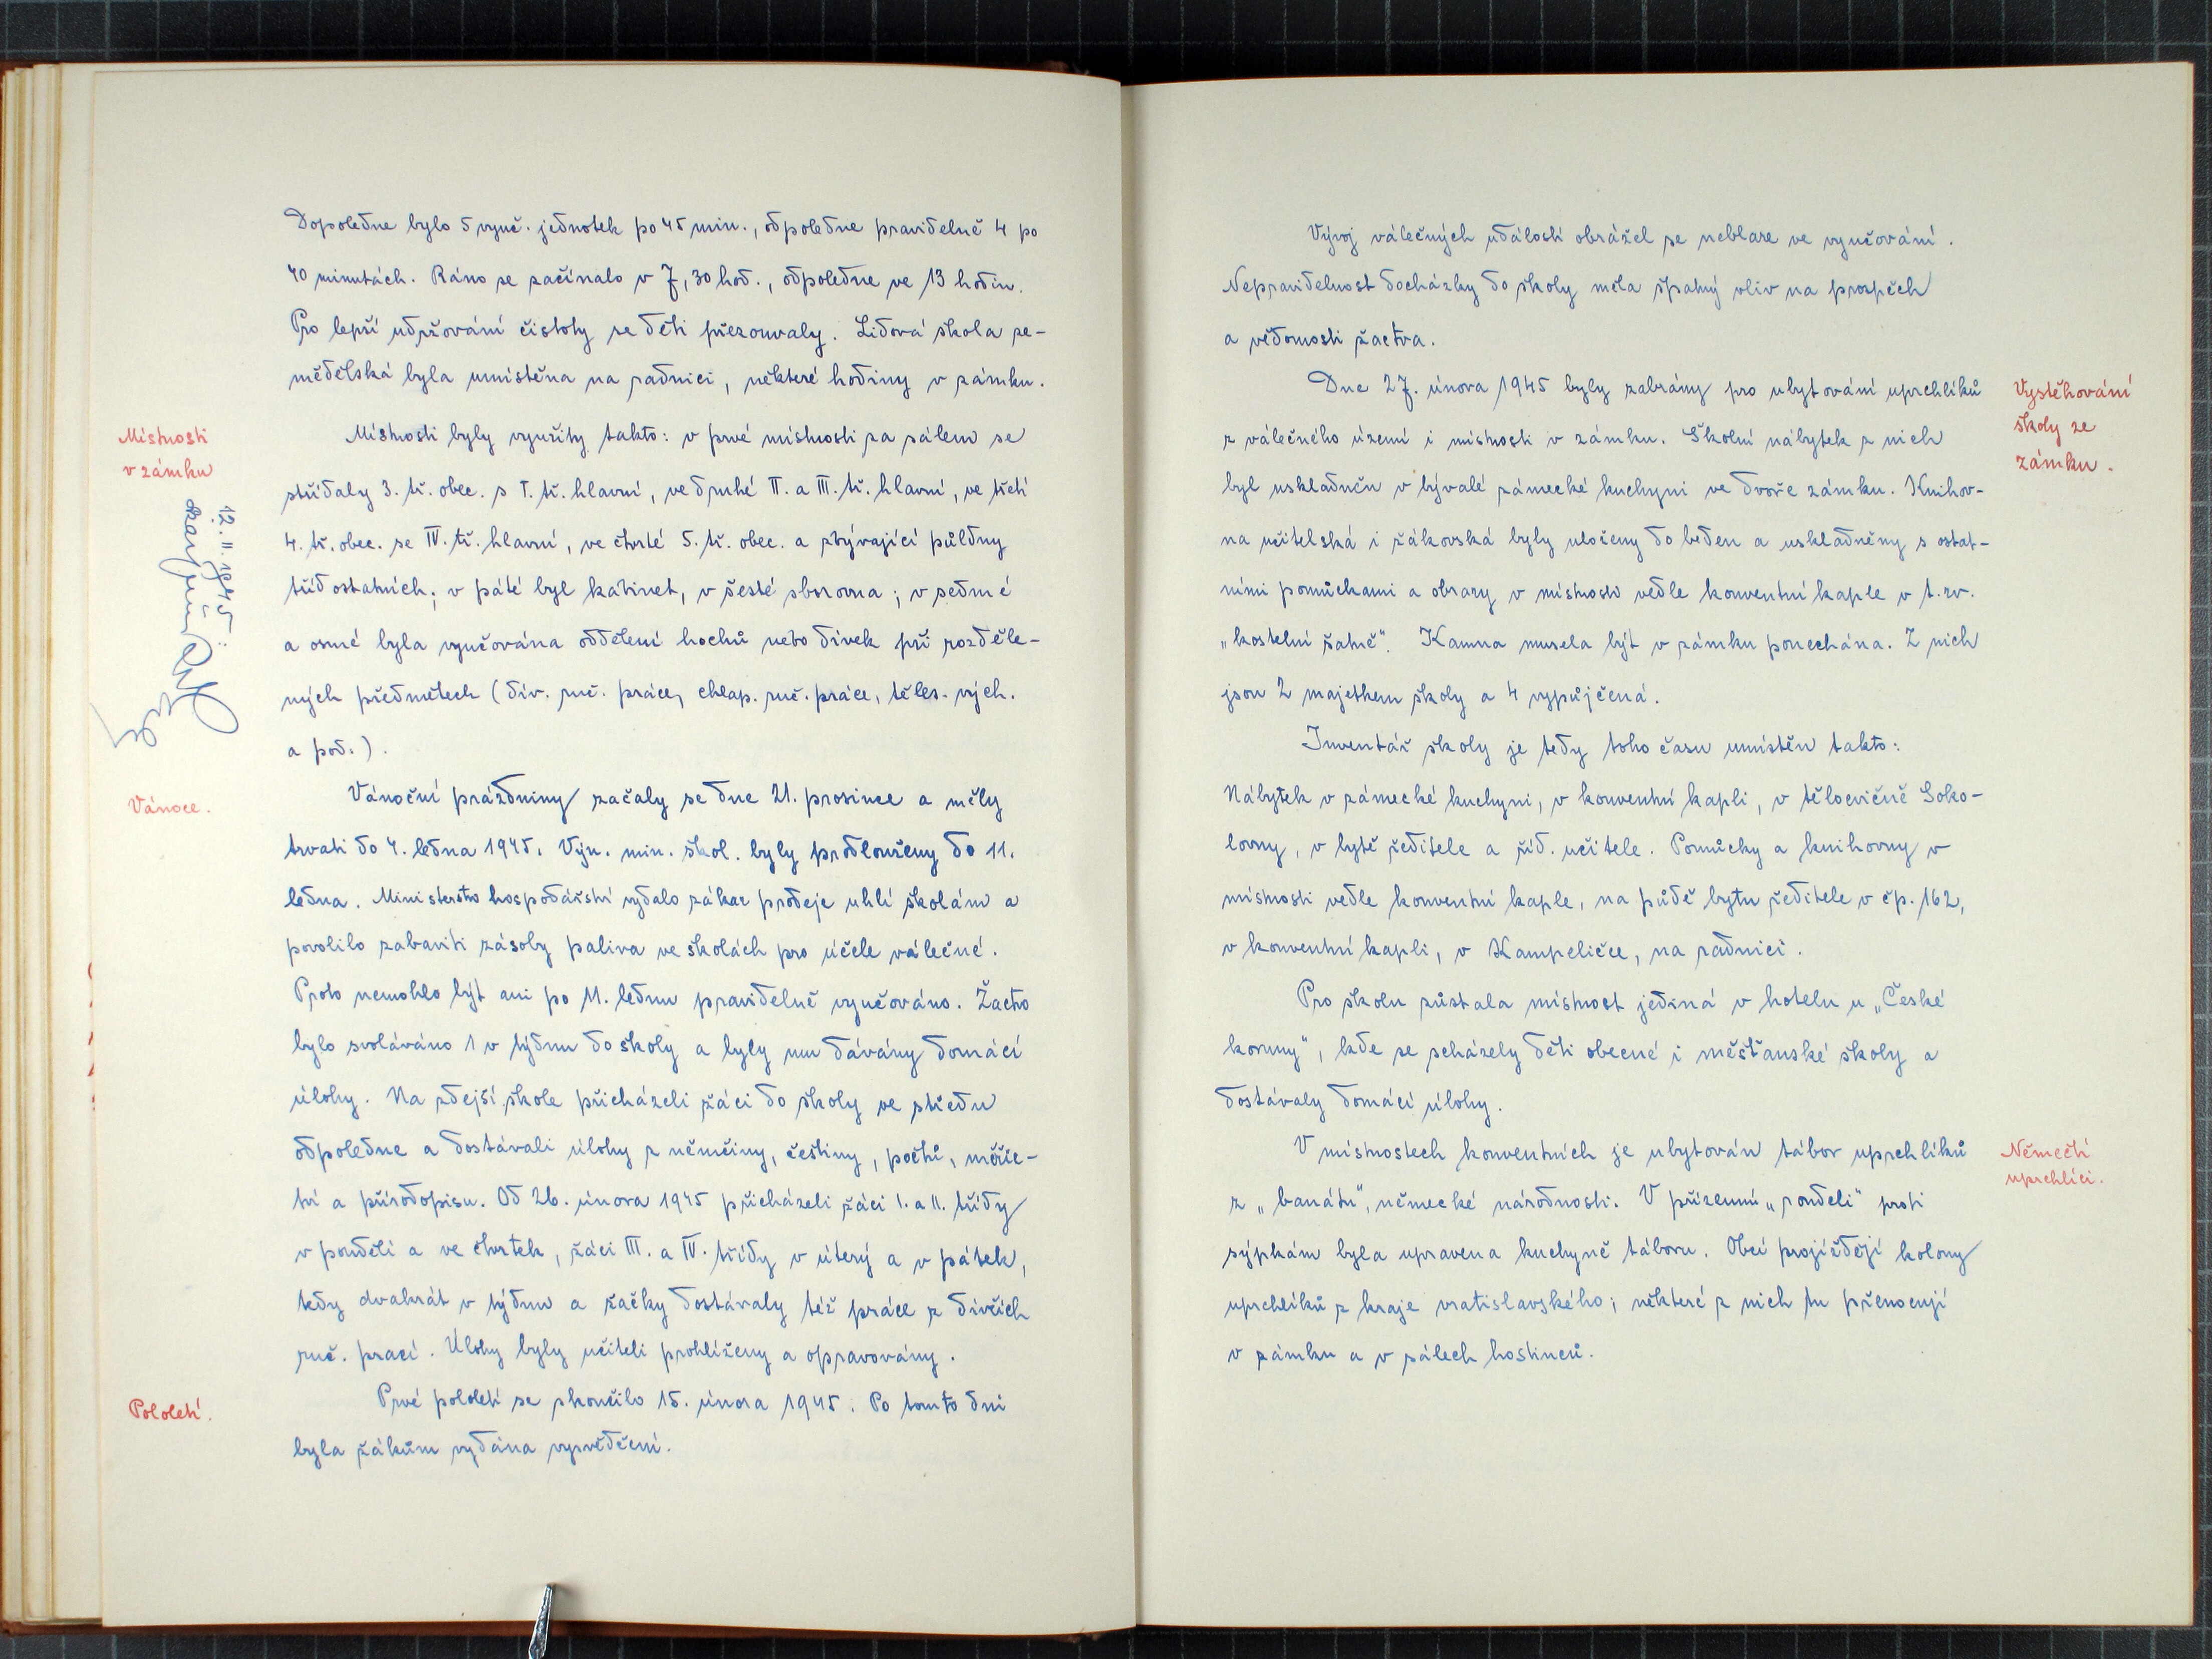 Dopoledne bylo 5 vyuč. jednotek po 45 min., odpoledne pravidelně 4 po
40 minutách. Ráno se začínalo v 7,30 hod., odpoledne ve 13 hodin.
Pro lepší udržování čistoty se děti přezouvaly. Lidová škola ze-
mědělská byla umístěna na radnici, některé hodiny v zámku.
Místnosti
v zámku
Místnosti byly využity takto: v prvé místnosti za sálem se
střídaly 3. tř. obec. s I. tř. hlavní, ve druhé II. a III. tř. hlavní, ve třetí
4. tř. obec. se IV. tř. hlavní, ve čtvrté 5. tř. obec. a zbývající půldny
tříd ostatních; v páté byl kabinet, v šesté sborovna; v sedmé
a osmé byla vyučována oddělení hochů nebo dívek při rozděle-
ných předmětech (dív. ruč. práce, chlap. ruč. práce, těles. vých.
a pod.).
12. II. 1945:
Vánoce.
Vánoční prázdniny začaly se dne 21. prosince a měly
trvati do 4. ledna 1945. Výn. min. škol. byly prodlouženy do 11.
ledna. Ministerstvo hospodářství vydalo zákaz prodeje uhlí školám a
povolilo zabaviti zásoby paliva ve školách pro účele válečné.
Proto nemohlo být ani po 11. lednu pravidelně vyučováno. Žactvo
bylo svoláváno 1 v týdnu do školy a byly mu dávány domácí
úlohy. Na zdejší škole přicházeli žáci do školy ve středu
odpoledne a dostávali úlohy z němčiny, češtiny, počtů, měřic-
tví a přírodopisu. Od 26. února 1945 přicházeli žáci I. a II. třídy
v pondělí a ve čtvrtek, žáci III. a IV. třídy v úterý a v pátek,
tedy dvakrát v týdnu a žačky dostávaly též práce z dívčích
ruč. prací. Úlohy byly učiteli prohlíženy a opravovány.
Pololetí.
Prvé pololetí se skončilo 15. února 1945. Po tomto dni
byla žákům vydána vysvědčení.
Vývoj válečných událostí obrážel se neblaze ve vyučování.
Nepravidelnost docházky do školy měla špatný vliv na prospěch
a vědomosti žactva.
Vystěhování
školy ze
zámku.
Dne 27. února 1945 byly zabrány pro ubytování uprchlíků
z válečného území i místnosti v zámku. Školní nábytek z nich
byl uskladněn v bývalé zámecké kuchyni ve dvoře zámku. Knihov-
na učitelská i žákovská byly uloženy do beden a uskladněny s ostat-
ními pomůckami a obrazy v místnosti vedle konventní kaple v t. zv.
„kostelní šatně". Kamna musela být v zámku ponechána. Z nich
jsou 2 majetkem školy a 4 vypůjčená.
Inventář školy je tedy toho času umístěn takto:
Nábytek v zámecké kuchyni, v konventní kapli, v tělocvičně Soko-
lovny, v bytě ředitele a říd. učitele. Pomůcky a knihovny v
místnosti vedle konventní kaple, na půdě bytu ředitele v čp. 162,
v konventní kapli, v Kampeličce, na radnici.
Pro školu zůstala místnost jediná v hotelu u „České
koruny", kde se scházely děti obecné i měšťanské školy a
dostávaly domácí úlohy.
Němečtí
uprchlíci.
V místnostech konventních je ubytován tábor uprchlíků
z „banátu", německé národnosti. V přízemní „rondeli" proti
sýpkám byla upravena kuchyně táboru. Obcí projíždějí kolony
uprchlíků z kraje vratislavského; některé z nich tu přenocují
v zámku a v sálech hostinců.